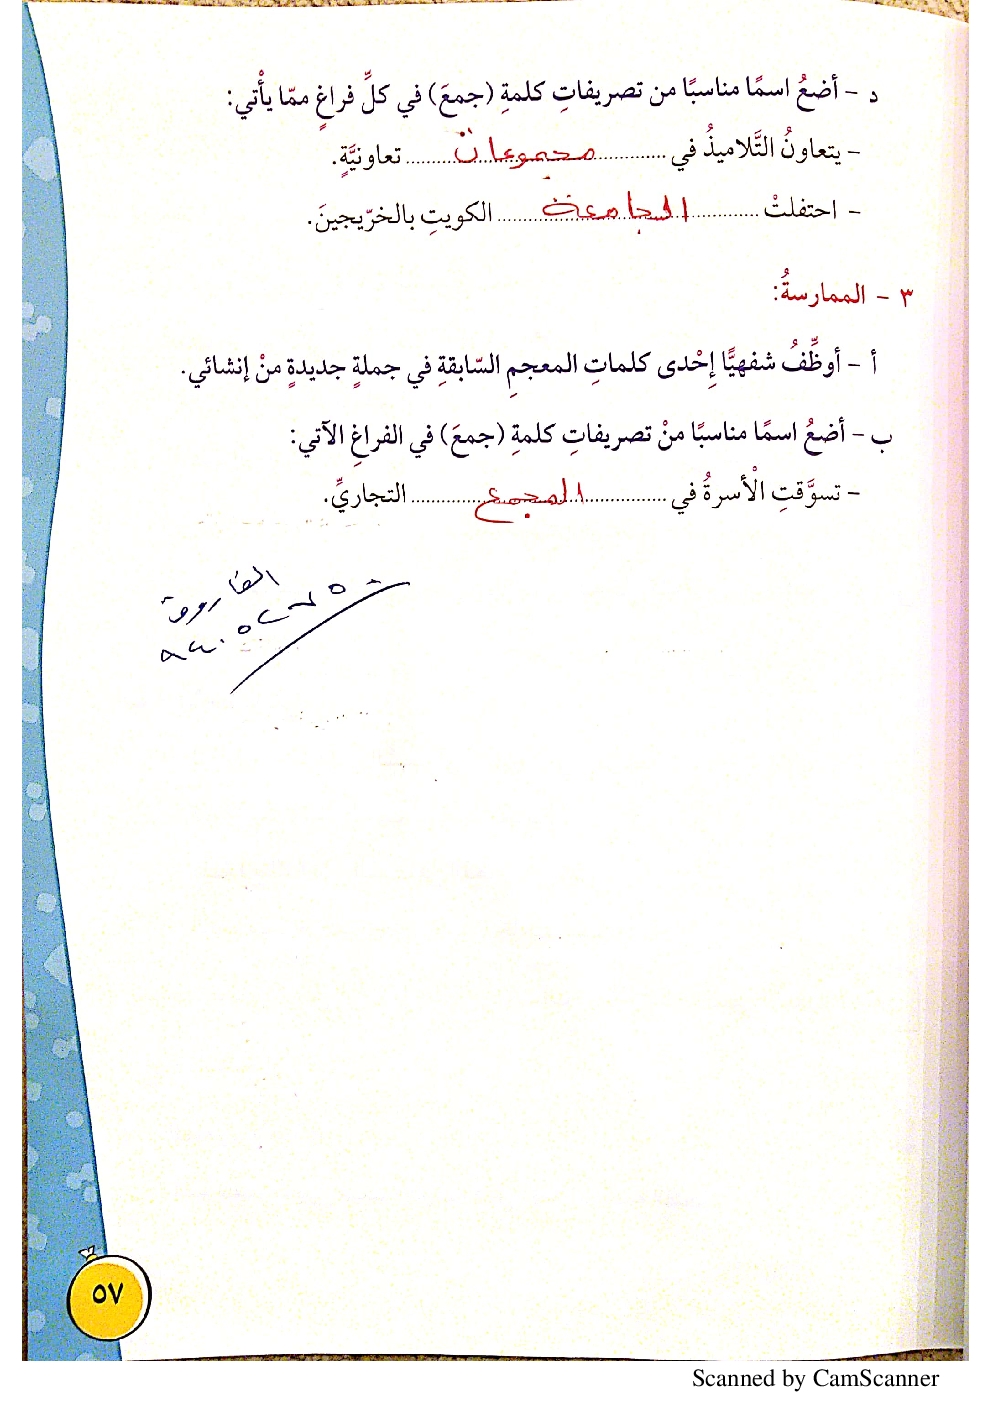 د - أضعُ اسمًا مناسبًا من تصريفاتِ كلمةِ (جمعَ) في كلِّ فراغٍ ممّا يأْتي:
- يتعاونُ التَّلاميذُ في ......مجموعات...... تعاونيَّةٍ.
- احتفلتْ ......الجامعة...... الكويتِ بالخرّيجينَ.
٣ - الممارسةُ:
أ - أوظِّفُ شفهيًّا إِحْدى كلماتِ المعجمِ السّابقةِ في جملةٍ جديدةٍ منْ إنشائي.
ب - أضعُ اسمًا مناسبًا منْ تصريفاتِ كلمةِ (جمعَ) في الفراغِ الآتي:
- تسوَّقتِ الْأسرةُ في ......المجمع...... التجاريِّ.
٥٧
Scanned by CamScanner